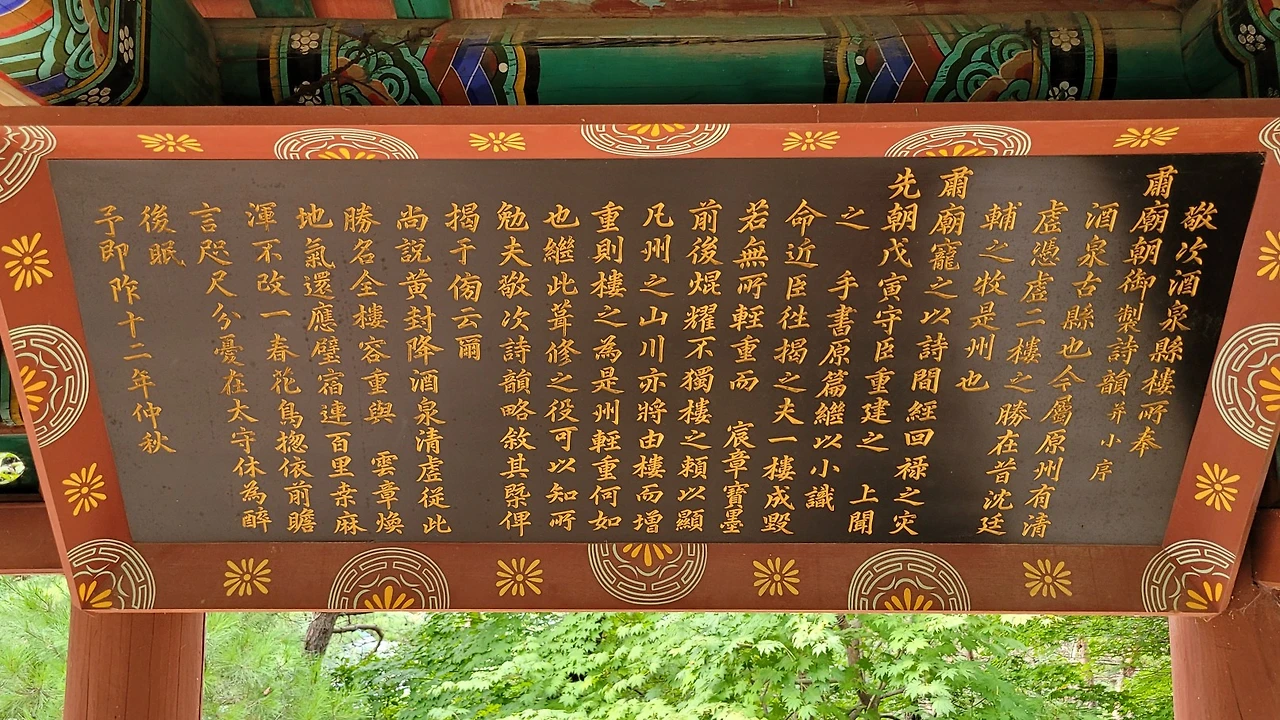 敬次酒泉縣樓所奉
肅廟朝御製詩韻并小序
酒泉古縣也今屬原州有清
虛憑虛二樓之勝在昔沈廷
輔之牧是州也
肅廟寵之以詩間經回祿之灾
先朝戊寅守臣重建之 上聞
之 手書原篇繼以小識
命近臣徃揭之夫一樓成毀
若無所輊重而 宸章寶墨
前後焜耀不獨樓之賴以顯
凡州之山川亦將由樓而增
重則樓之為是州輊重何如
也繼此葺修之役可以知所
勉夫敬次詩韻略敘其槩俾
揭于衙云爾
尚説黄封降酒泉清虛従此
勝名全樓容重與 雲章煥
地氣還應璧宿連百里桒麻
渾不改一春花鳥揔依前瞻
言咫尺分憂在太守休為醉
後眠
予即阼十二年仲秋